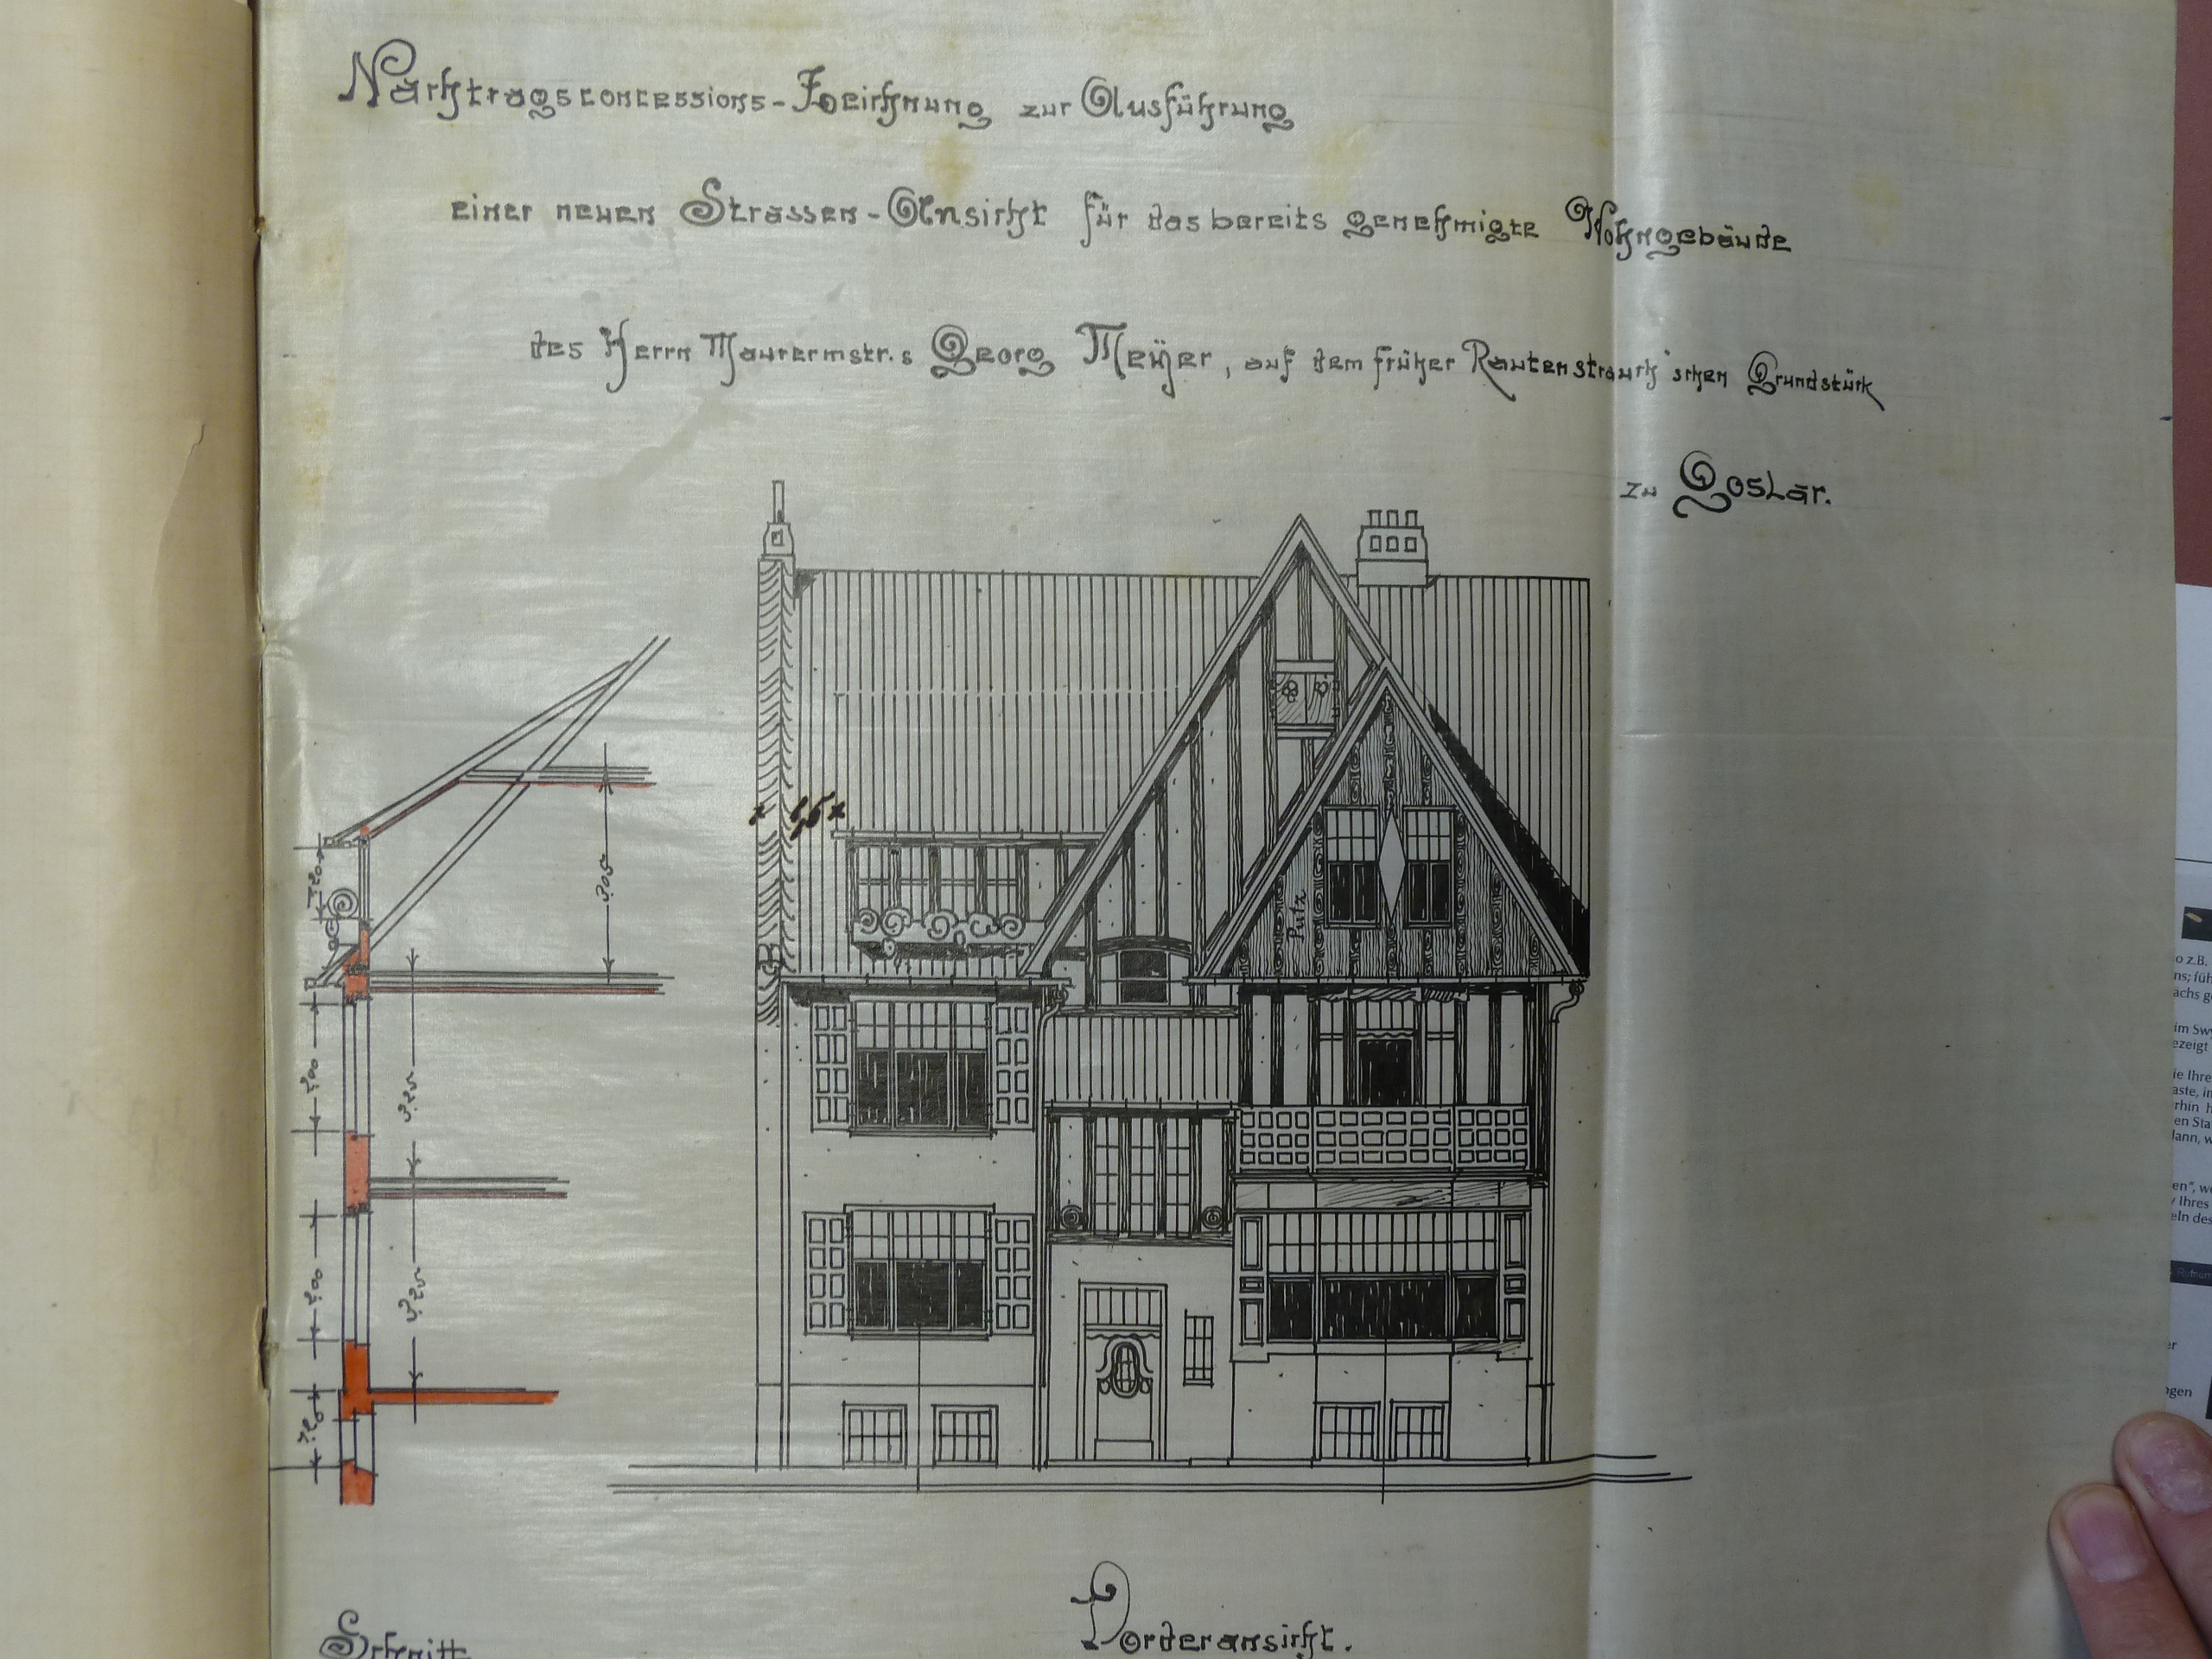 Nachtragsconcessions-Zeichnung zur Ausführung
einer neuen Strassen-Ansicht für das bereits genehmigte Wohngebäude
des Herrn Maurermstr.s Georg Meÿer, auf dem früher Rautenstrauch'schen Grundstück
zu Goslar.
Putz
3,25
3,25
2,00
2,00
Schnitt
Vorderansicht.
o z.B.
im Sw
ezeigt
ie Ihre
aste, in
rhin h
en Sta
dann, w
en", w
Ihres
eln des
er
gen